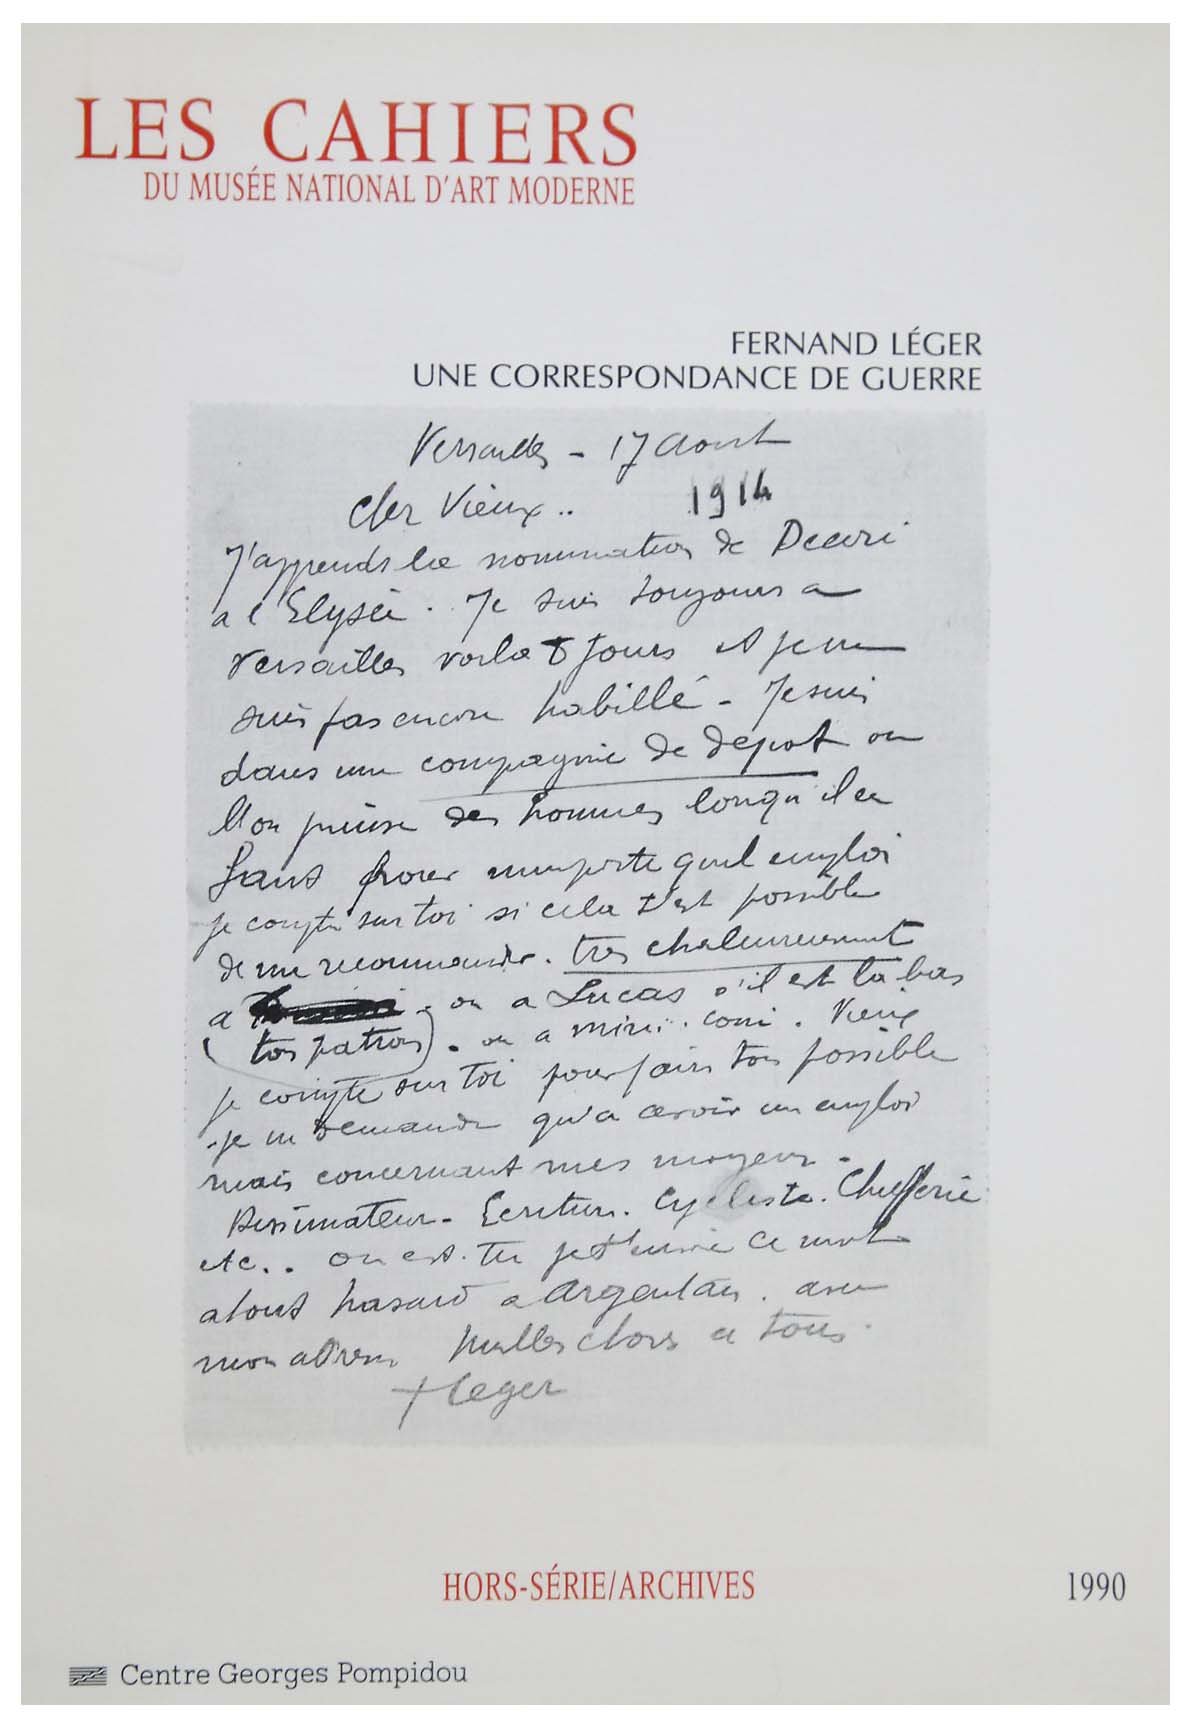 LES CAHIERS
DU MUSÉE NATIONAL D'ART MODERNE
FERNAND LÉGER
UNE CORRESPONDANCE DE GUERRE
Versailles - 17 Aout
1914
Cher Vieux..
J'apprends la nomination de Decori
a l'Elysée. Je suis toujours a
Versailles voila 8 jours et je ne
suis pas encore habillé - Je suis
dans une compagnie de depot ou
l'on puise des hommes lorsqu'il en
faut pour n'importe quel emploi
je compte sur toi si cela t'est possible
de me recommander. tres chaleureusement
a ou a Lucas s'il est la bas
(ton patron). ou a Vieux
je compte sur toi pour faire ton possible
je ne demande qu'a avoir un emploi
mais concernant mes moyens.
Dessinateur - Ecriture. Cycliste.
etc.. ou es-tu je t'envoie ce mot
a tout hasard a Argentan. avec
mon adresse Milles choses a tous.
F Leger
HORS-SÉRIE/ARCHIVES
1990
Centre Georges Pompidou